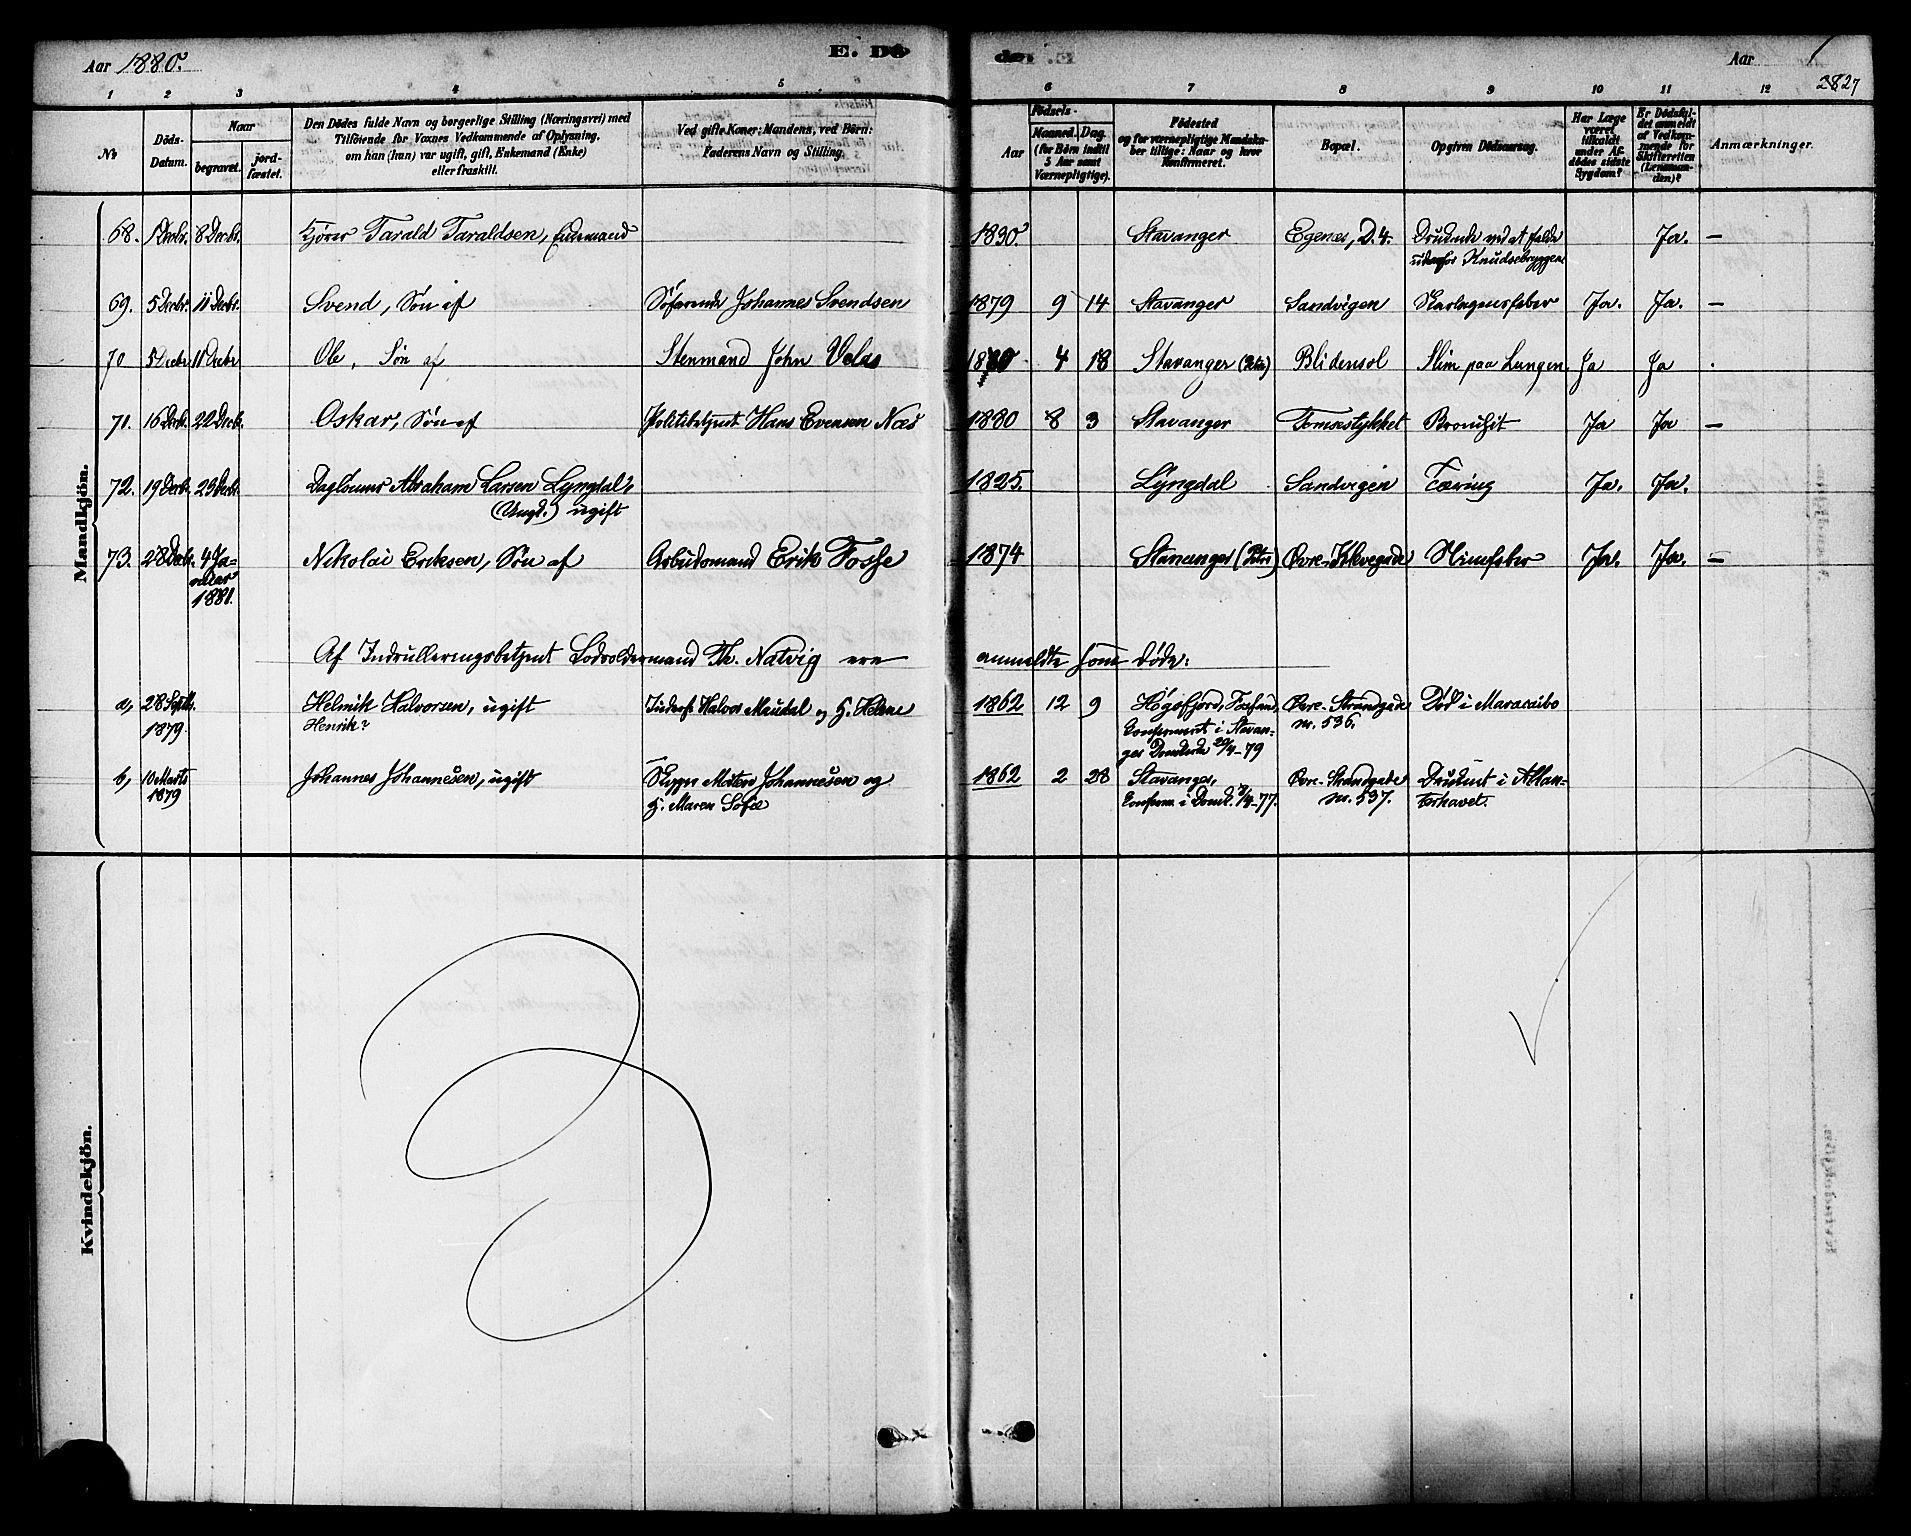 Aar 1880. E. Dö
1 2 3 4 5
No
Döds-
Datum.
Naar
begravet. jord-
fæstet.
Den Dödes fulde Navn og borgerlige Stilling (Næringsvei) med
Tilföiende for Voxnes Vedkommende af Oplysning,
om han (hun) var ugift, gift, Enkemand (Enke)
eller fraskilt.
Ved gifte Koner: Mandens, ved Börn:
Faderens Navn og Stilling.
de. Aar
282 7
6 7 8 9 10 11 12
Födsels-
Aar
Maaned. Dag.
(for Börn indtil
5 Aar samt
Værnepligtige).
Födested
og for værnepligtige Mandska-
ber tillige: Naar og hvor
konfirmeret.
Bopæl.
Opgiven Dödsaarsag.
Har Læge
været
tilkaldt
under Af-
dödes sidste
Sygdom?
Er Dödsfal-
det anmeldt
af Vedkom-
mende for
Skifteretten
(Lensman-
den)?
Anmærkninger.
Mandkjön.
68. 1 Decbr. 8 Decbr. Kjører Tarald Taraldsen, Enkemand 1830 Stavanger Egenes, D. 4. Druknede ved at falde Ja. —
udenfor Knudsebryggen
69. 5 Decbr. 11 Decbr. Svend, Søn af Søfarende Johannes Svendsen 1879 9 14 Stavanger Sandvigen Skarlagensfeber Ja. Ja. —
70 5 Decbr 11 Decbr Ole, Søn af Stenmand John Velas 1880 4 18 Stavanger (Petri) Blidensol Slim paa Lungen Ja Ja .
71. 16 Decb. 22 Decb. Oskar, Søn af Politibetjent Hans Evensen Næs 1880 8 3 Stavanger Tomsestykket Bronchit Ja Ja —
72. 19 Decbr. 23 Decbr. Daglønner Abraham Larsen Lyngdal, 1825. Lyngdal Sandvigen Tæring Ja. Ja.
ugift
73. 28 Decbr. 4 Ja- Nikolai Eriksen, Søn af Arbeidsmand Erik Fosse 1874 Stavanger (Petri) Øvre- Hjernefeber Ja. Ja. —
nuar
1881.
Af Indrulleringsbetjent Lodsoldermand Th. Natvig ere anmeldte som døde:
a, 28 Septb. Helmik Halvorsen, ugift Halvor Meudal og H. Helene 1862 12 9 Høgsfjord, Fosfand, Øvre- Strandgade Død i Maracaibo
1879. Henrik? Konfirmeret i Stavan- nr. 536.
ger Domkirke 20/4-79
b, 10 Marts Johannes Johannesen, ugift Skipper Johannesen og 1862 2 28 Stavanger, Øvre- Strandgade Druknet i Atlan-
1879 H. Maren Sofie Konfirm. i Domk. -77. nr. 537. terhavet.
Kvindekjön.